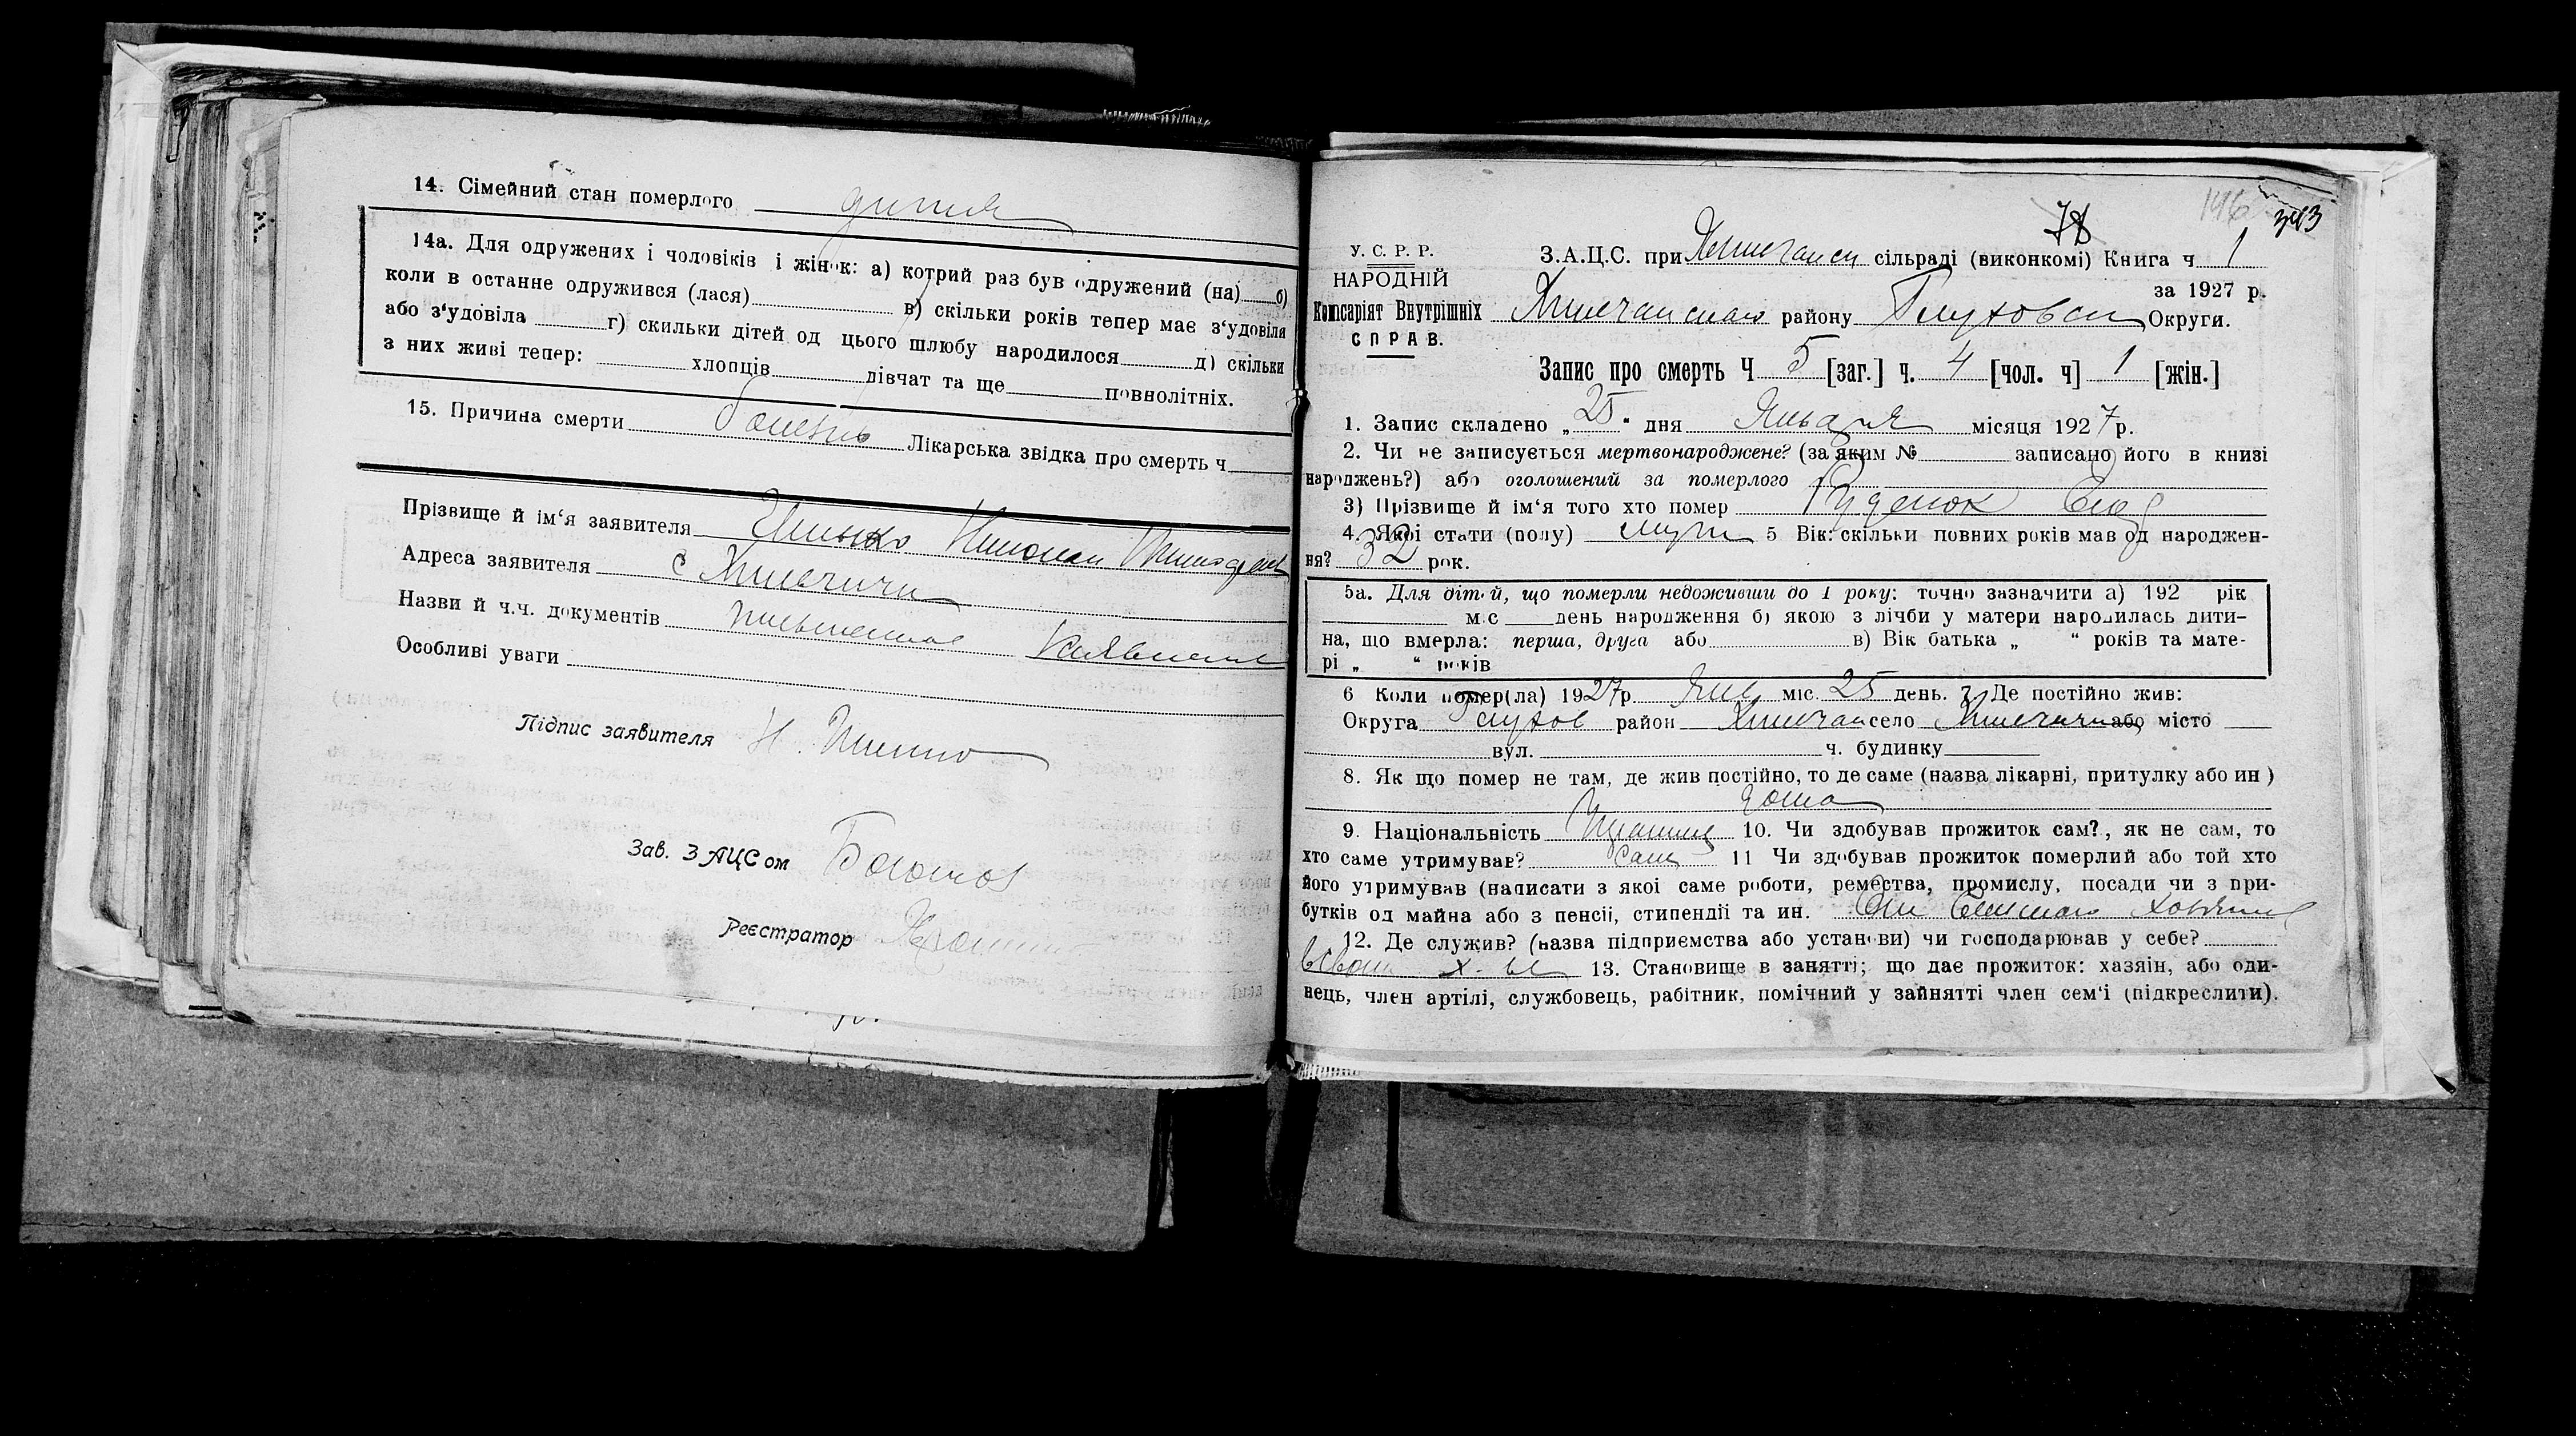 14. Сімейний стан померлого дитя
14а. Для одружених і чоловіків і жінок: а) котрий раз був одружений (на) б)
коли в останне одружився (лася) в) скільки років тепер має з‘удовіля
або з‘удовіла г) скильки дітей од цього шлюбу народилося д) скільки
з них живі тепер: хлопців дівчат та ще повнолітніх.
15. Причина смерти болезнь Лікарська звідка про смерть ч
Прізвище й ім‘я заявителя Николай
Адреса заявителя с Хинечичи
Назви й ч.ч. документів письменное
Особливі уваги
Підпис заявителя Н.
Зав. ЗАЦСом
Реєстратор
78 146 343
У. С. Р. Р.
НАРОДНІЙ
Комісаріят Внутрішніх
СПРАВ.
З.А.Ц.С. при сільраді (виконкомі) Книга ч 1
за 1927 р.
району Глуховск Округи.
Запис про смерть Ч 5 [заг.] ч. 4 [чол. ч] 1 [жін.]
1. Запис складено „25“ дня Января місяця 1927 р.
2. Чи не записується мертвонароджене? (за яким № записано його в книзі
народжень?) або оголошений за померлого
3) Прізвище й ім‘я того хто помер Руденок
4. Якоі стати (полу) муж 5 Вік: скільки повних років мав од народжен-
ня? 32 рок.
5а. Для дітей, що померли недоживши до 1 року: точно зазначити а) 192 рік
міс день народження б) якою з лічби у матери народилась дити-
на, що вмерла: перша, друга або в) Вік батька „ “ років та мате-
рі „ “ років
6 Коли помер(ла) 1927 р. Янв міс. 25 день. 7 Де постійно жив:
Округа Глухов район село або місто
вул. ч. будинку
8. Як що помер не там, де жив постійно, то де саме (назва лікарні, притулку або ин)
дома
9. Національність Украинец 10. Чи здобував прожиток сам?, як не сам, то
хто саме утримував? сам 11 Чи здобував прожиток померлий або той хто
його утримував (написати з якоі саме роботи, ремества, промислу, посади чи з при-
бутків од майна або з пенсіі, стипендіі та ин. От сельского
12. Де служив? (назва підприємства або установи) чи господарював у себе?
в своем х-ве 13. Становище в занятті; що дає прожиток: хазяін, або оди-
нець, член артілі, службовець, рабітник, помічний у зайнятті член сем‘і (підкреслити).